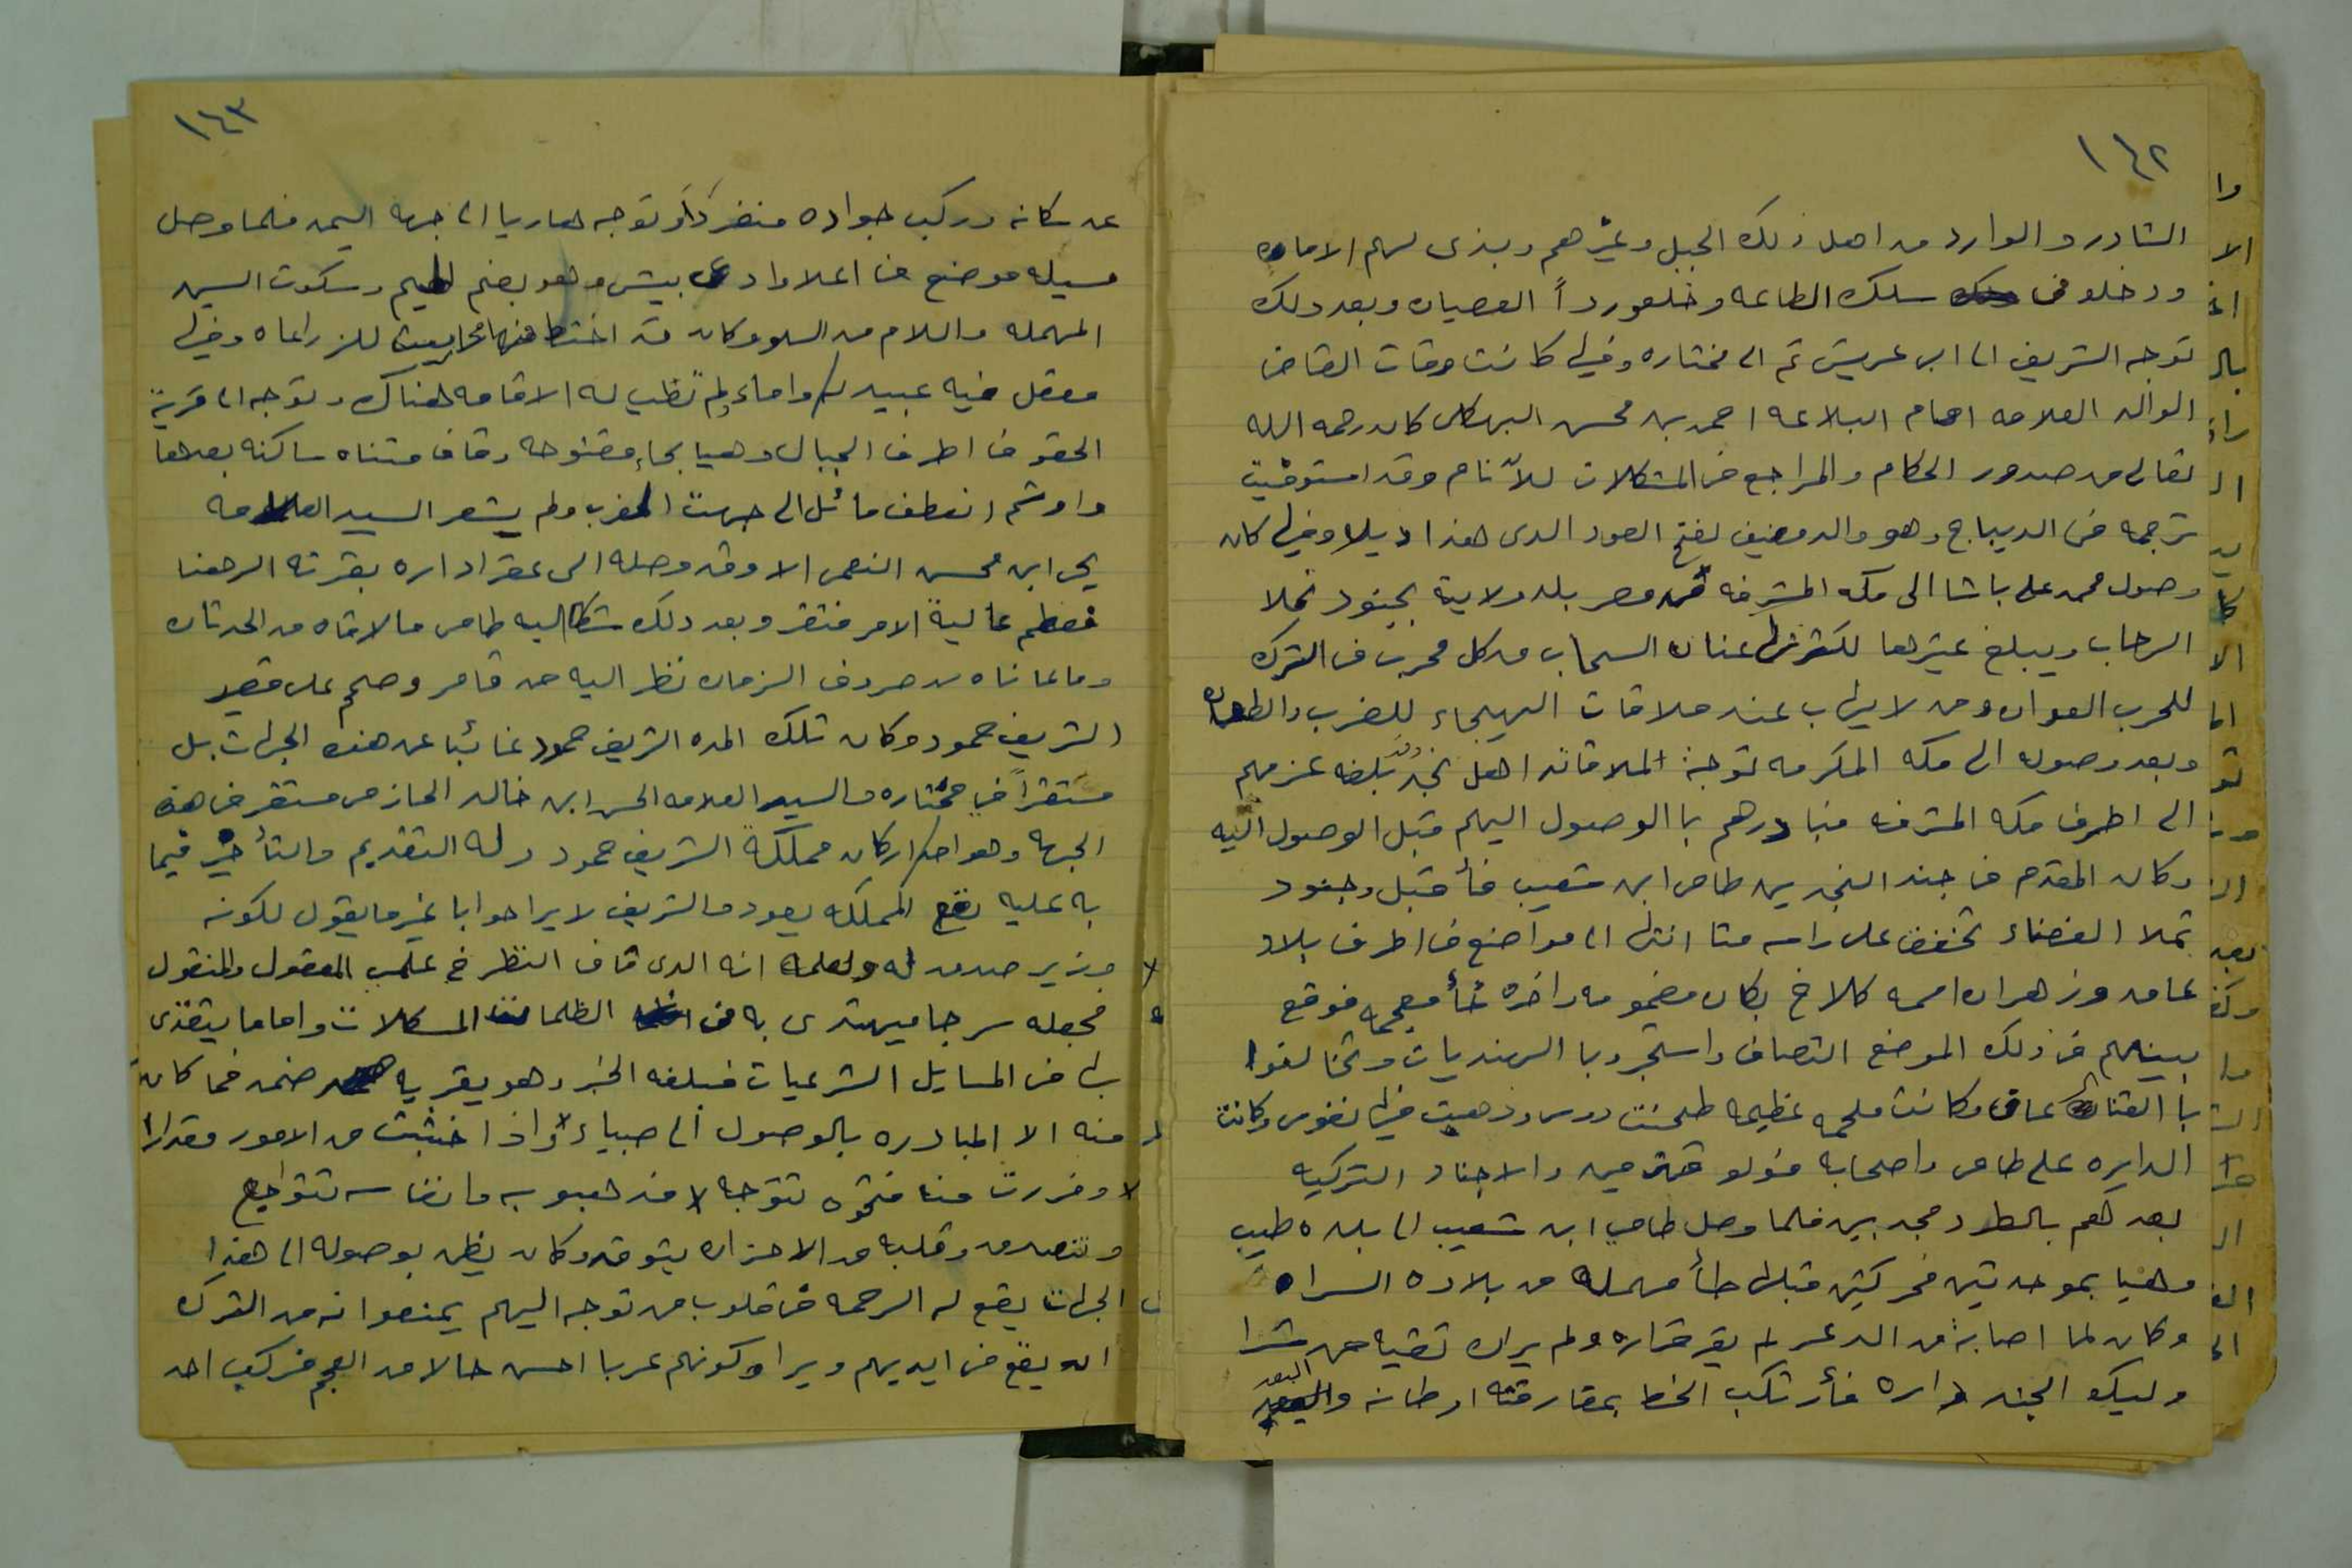 ١٤٢
الشادر والوارد من اهل ذلك الجبل وغيرهم وبذى لهم الامان
ودخلو في سلك الطاعه وخلعو رداً العصيان وبعد ذلك
توجه الشريف الى ابى عريش ثم الى مختاره وفيها كانت وفات القاضى
الوالد العلامه امام البلاغه احمد بن محسن البهكلى كان رحمه الله
تعالى من صدور الحكام والمراجع في المشكلات للأنام وقد استوفيت
ترجمه في الديباج وهو والد مضيف لفتح العود الدى هذا ديلا وفيها كان
وصول محمد على باشا الى مكه المشرفه من مصر بلد ولايته بجنود تملا
الرحاب ويبلغ عيرها لكثرتها عنان السحاب من كل مجرب في الترك
للحرب العوان ومن لا يهاب عند ملاقات الهيجاء للضرب والطعان
وبعد وصوله الى مكه المكرمه توجه لملاقات اهل نجد وقد بلغه عزمهم
الى اطرف مكه المشرفه فبادرهم با الوصول اليهم قبل الوصول اليه
وكان المقدم في جند النجدين طامى ابن شعيب فأقبل وجنود
تملا الفضاء تخفق على راسه متا انتها الى مواضع في اطرف بلاد
غامد وزهران اسمه كلاخ بكاف مضمومه واخره خأ معجمه فوقع
بينهم في ذلك الموضع التصاف واستجرو با الهنديات وتخالفوا
با القنا وكانت ملحمه عظيمه طحنت روس وذهبت فيها نفوس وكانت
الدايره على طامى واصحابه فولو منهزمين والاجناد التركيه
بعدهم بالطرد مجدبين فلما وصل طامى ابن شعيب الى بلده طبب
وهيا بموحدتين محركتين قبلها طأ مهمله من بلاده السراه
وكان لما اصابه من الدعر لم يقر قراره ولم يران تقيه من شرا
وليكو الجند داره فأرتكب الخطا بمفارقته اوطانه والبعد
١٤٣
عن سكانه وركب جواده منفرداً وتوجه هاربا الى جهه اليمن فلما وصل
مسيله موضع في اعلا وادى بيش وهو بضم الميم وسكون السين
المهمله واللام من السلو وكان قد اختط منها محاريث للزراعاه وفيها
معقل فيه عبيد له واماء ولم تطب له الاقامه هناك وتوجه الى قرية
الحقو في اطرف الجبال وهيا بحاء مفتوحه وقاف مثناه ساكنه بعدها
واو ثم انعطف مائل الى جهت المغرب ولم يشعر السيد العلامه
يحى ابن محسن النعمى الا وقد وصله الى عقر اداره بقرته الرهنا
فعظم عاليه الامر فتقر وبعد ذلك شكا اليه طامى ما لاقاه من الحدثان
وما عاناه من صروف الزمان نظر اليه من قامر وصمم على قصد
الشريف حمود وكان تلك المده الشريف حمود غائبا عن هذه الجهات بل
مستقراً في مختاره والسيد العلامه الحسن ابن خالد الحازمى مستقر في هذه
الجهه وهو احد اركان مملكة الشريف حمود وله التقديم والتأخير فيما
به عليه نفع المملكه يعود والشريف لا يرا صوابا غير ما يقول لكونه
وزير صدق له ولعلمه انه الدى فاق النظر في علمى المعقول والمنقول
فجعله سرجا ميهتدى به في الظلمات المشكلات واماما يقتدى
بها في المسايل الشرعيات فبلغه الخبر وهو يقريه ضمد فما كان
منه الا المبادره بالوصول الى صبياء واذا خشيت من الامور مقدرا
وفررت منه فنحوه تتوجه لاقته هبوبه وانفاسه تتواجع
وتتصعد وقلبه من الاحزان يتوقد وكان يظن بوصوله الى هذا
الجهات يقع له الرحمه في قلوب من توجه اليهم يمنعوانه من الترك
ان يقع في ايديهم ويرا وكونهم عربا احسن حالا من العجم فركب احد